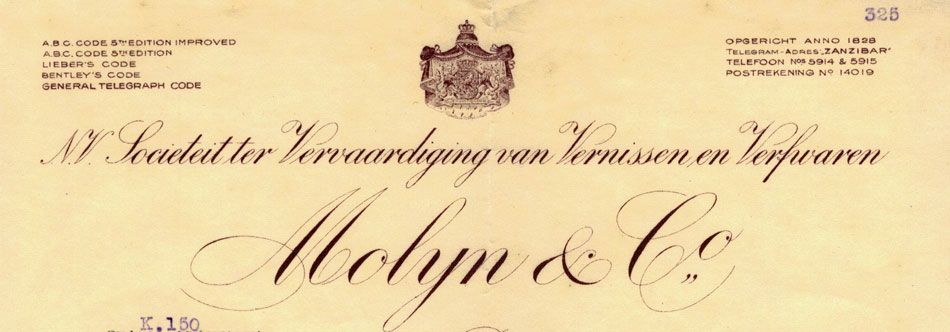 325
A.B.C. CODE 5TH EDITION IMPROVED
A.B.C. CODE 5TH EDITION
LIEBER'S CODE
BENTLEY'S CODE
GENERAL TELEGRAPH CODE
OPGERICHT ANNO 1828
TELEGRAM-ADRES „ZANZIBAR"
TELEFOON NOS 5914 & 5915
POSTREKENING No 14019
N.V. Societeit ter Vervaardiging van Vernissen en Verfwaren
Molyn & Co.
K.150